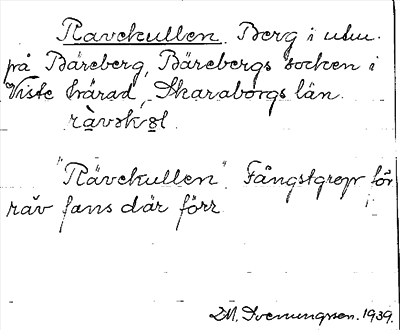 Ravekullen. Berg i utm.
på Bäreberg, Bärebergs socken i
Viste härad, Skaraborgs län.
"Rävekullen". Fångstgrop för
räv fans där förr
D.M. Svenungsson. 1939.